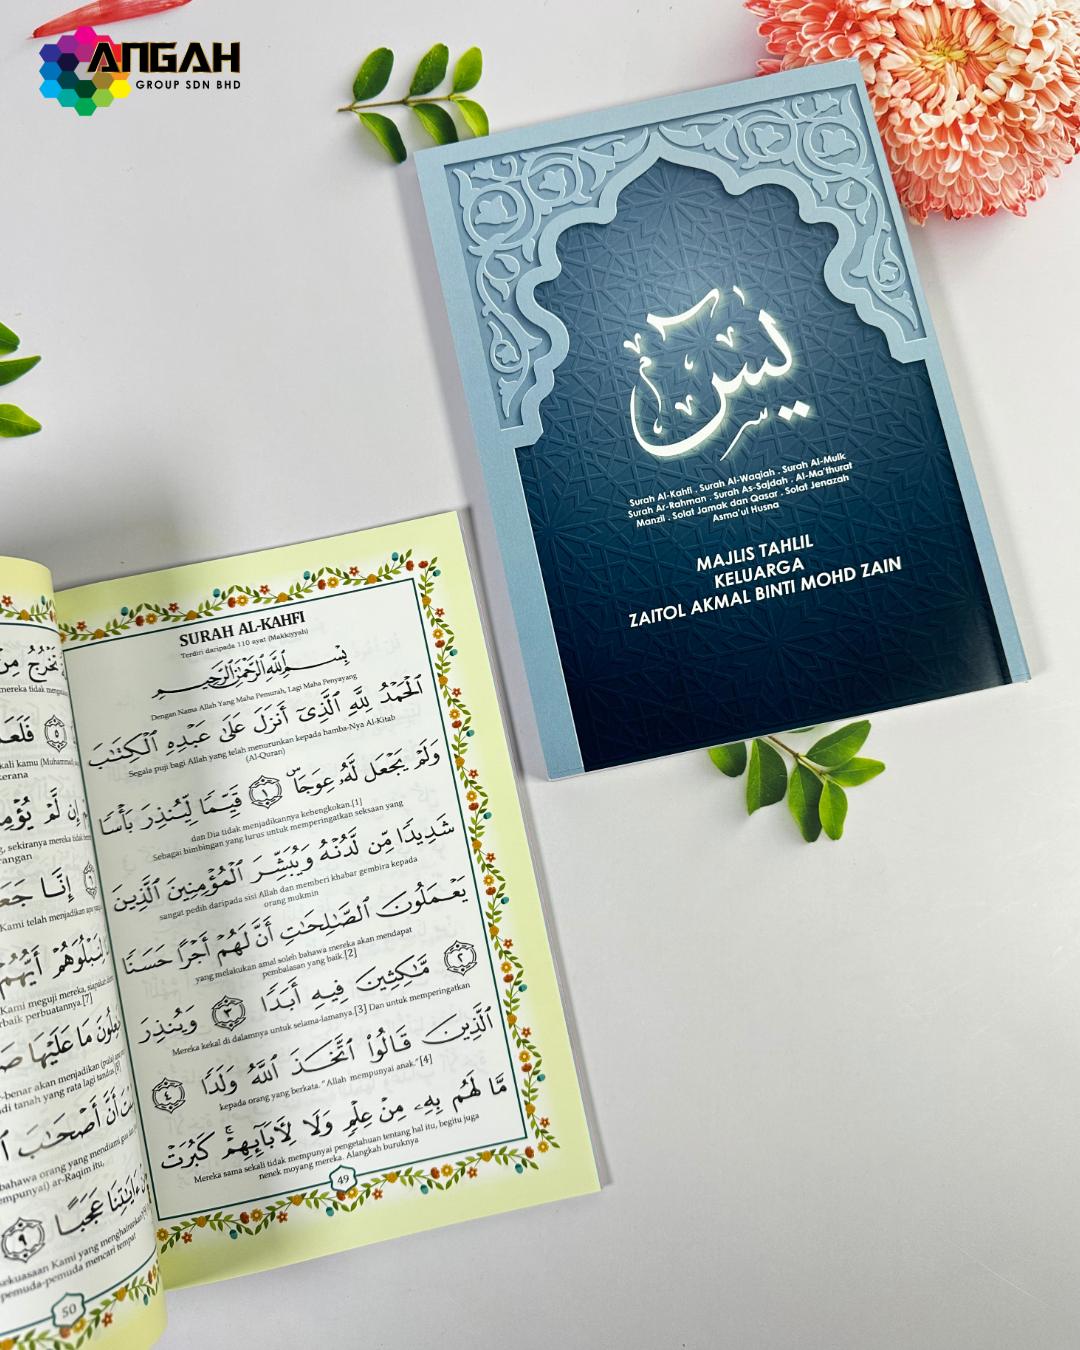 ANGAH
GROUP SDN BHD
يس
Surah Al-Kahfi . Surah Al-Waqiah . Surah Al-Mulk
Surah Ar-Rahman . Surah As-Sajdah . Al-Ma'thurat
Manzil . Solat Jamak dan Qasar . Solat Jenazah
Asma'ul Husna
MAJLIS TAHLIL
KELUARGA
ZAITOL AKMAL BINTI MOHD ZAIN
SURAH AL-KAHFI
Terdiri daripada 110 ayat (Makkiyyah)
بِسْمِ اللَّهِ الرَّحْمَٰنِ الرَّحِيمِ
Dengan Nama Allah Yang Maha Pemurah, Lagi Maha Penyayang
الْحَمْدُ لِلَّهِ الَّذِي أَنزَلَ عَلَىٰ عَبْدِهِ الْكِتَٰبَ
Segala puji bagi Allah yang telah menurunkan kepada hamba-Nya Al-Kitab
(Al-Quran)
وَلَمْ يَجْعَل لَّهُ عِوَجًا ۜ ١ قَيِّمًا لِّيُنذِرَ بَأْسًا
dan Dia tidak menjadikannya kebengkokan.[1]
Sebagai bimbingan yang lurus untuk memperingatkan seksaan yang
شَدِيدًا مِّن لَّدُنْهُ وَيُبَشِّرَ الْمُؤْمِنِينَ الَّذِينَ
sangat pedih daripada sisi Allah dan memberi khabar gembira kepada
orang mukmin
يَعْمَلُونَ الصَّٰلِحَٰتِ أَنَّ لَهُمْ أَجْرًا حَسَنًا
yang melakukan amal soleh bahawa mereka akan mendapat
pembalasan yang baik.[2]
٢ مَّٰكِثِينَ فِيهِ أَبَدًا ٣ وَيُنذِرَ
Mereka kekal di dalamnya untuk selama-lamanya.[3] Dan untuk memperingatkan
الَّذِينَ قَالُوا اتَّخَذَ اللَّهُ وَلَدًا ٤
kepada orang yang berkata. "Allah mempunyai anak."[4]
مَّا لَهُم بِهِ مِنْ عِلْمٍ وَلَا لِآبَائِهِمْ ۚ كَبُرَتْ
Mereka sama sekali tidak mempunyai pengetahuan tentang hal itu, begitu juga
nenek moyang mereka. Alangkah buruknya
49
mereka tidak
٥
kali kamu (Muhammad)
kerana
إِن لَّمْ
sekiranya mereka tidak
٦ إِنَّا
Kami telah menjadikan apa
لِنَبْلُوَهُمْ أَيُّهُمْ
Kami meguji mereka,
perbuatannya.[7]
مَا عَلَيْهَا
-benar akan menjadikan
di tanah yang rata lagi tandus.[8]
أَنَّ أَصْحَٰبَ
bahawa orang yang mendiami gua
ar-Raqim itu,
ءَايَٰتِنَا عَجَبًا ٩
Kami yang menghairankan
pemuda-pemuda mencari tempat
50